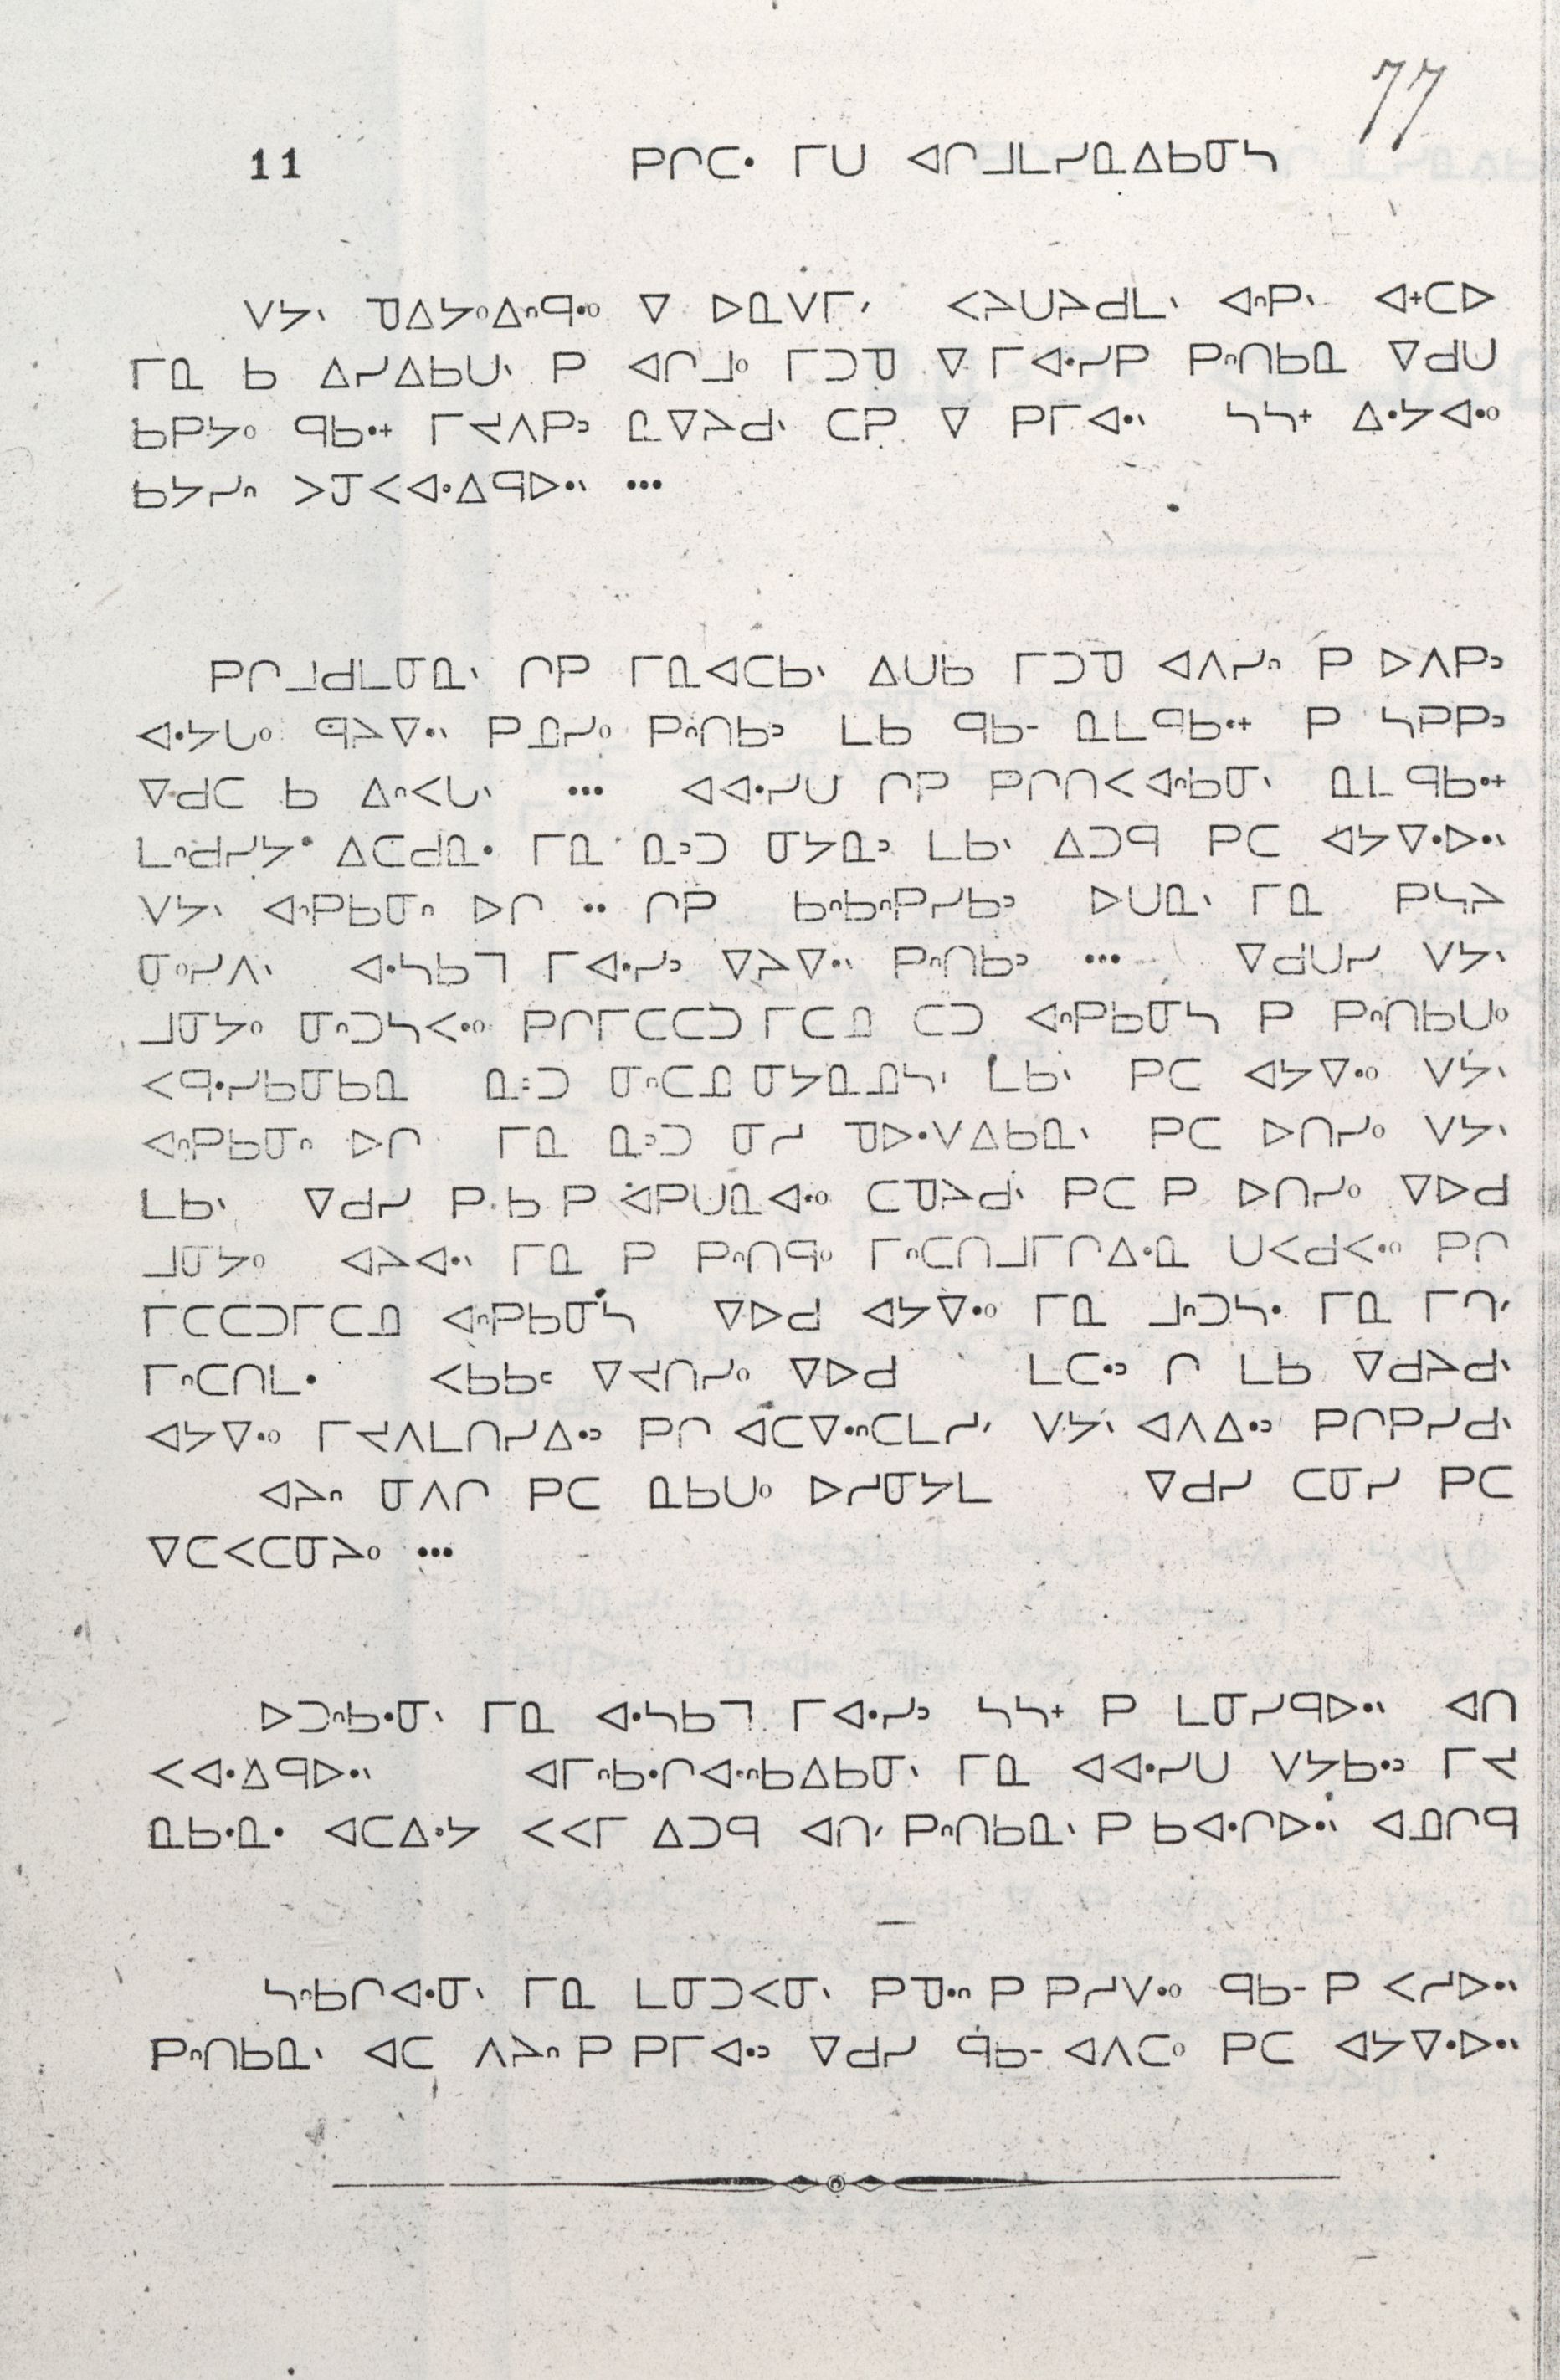 77
11 ᑭᒋᑕᐧ ᒥᑌ ᐊᒋᒧᒪᓯᓇᐃᑲᓂᓴ
ᐯᔭᐠ ᑯᐃᔭᐤᐃᐢᑫᐧᐤ ᐁ ᐅᓇᐯᒥᐟ ᐸᔨᑌᔨᑯᒪᐠ ᐊᐢᑭᐠ ᐊᐩᑕᐅ
ᒥᓇ ᑲ ᐃᓯᐃᑲᑌᐠ ᑭ ᐊᒋᒧᐤ ᒥᑐᑯ ᐁ ᒥᐊᐧᓯᑭ ᑭᐢᑎᑲᓇ ᐁᑯᑌ
ᑲᑭᔭᐤ ᑫᑲᐧᐩ ᒥᔪᐱᑭᐣ ᓇᐁᔨᑯᐠ ᑕᑭ ᐁ ᑭᒥᐊᐧᐠ ᓴᓴᐩ ᐃᐧᔭᐊᐧᐤ
ᑲᔭᓯᐢ ᐳᒍᐸᐊᐧᐃᑫᐅᐧᐠ •••
ᑭᒋᒧᑯᒪᓂᓇᐠ ᒋᑭ ᒥᓇᐊᑕᑲᐠ ᐃᑌᑲ ᒥᑐᑯ ᐊᐱᓯᐢ ᑭ ᐅᐱᑭᐣ
ᐊᐧᔭᒐᐤ ᑫᔨᐁᐧᐠ ᑭᓄᓯᐤ ᑭᐢᑎᑲᐣ ᒪᑲ ᑫᑲ- ᓇᒪᑫᑲᐧᐩ ᑭ ᓴᑭᑭᐣ
ᐁᑯᑕ ᑲ ᐃᐢᐸᒐᐠ ••• ᐊᐊᐧᓯᑌ ᒋᑭ ᑭᒋᑎᐸᐊᐢᑲᓂᐠ ᓇᒪᑫᑲᐧᐩ
ᒪᐢᑯᓯᔭ• ᐃᑕᑯᓇᐧ ᒥᓇ ᓇᐣᑐ ᓂᔭᓇᐣ ᒪᑲᐠ ᐃᑐᑫ ᑭᑕ ᐊᔭᐁᐧᐅᐧᐠ
ᐯᔭᐠ ᐊᐢᑭᑲᓂᐢ ᐅᒋ •• ᒋᑭ ᑲᐢᑲᐢᑭᓯᑲᐣ ᐅᑌᓇᐠ ᒥᓇ ᑭᓴᔨ
ᓂᐤᓯᐱᐠ ᐊᐧᓴᑲᒣ ᒥᐊᐧᓯᐣ ᐁᔨᐁᐧᐠ ᑭᐢᑎᑲᐣ ••• ᐁᑯᑌᓯ ᐯᔭᐠ
ᒧᓂᔭᐤ ᓂᐢᑐᓴᐸᐧᐤ ᑭᒋᒥᑕᑕᑐᒥᑕᓄ ᑕᑐ ᐊᐢᑭᑲᓂᓴ ᑭ ᑭᐢᑎᑲᑌᐤ
ᐸᑫᐧᓯᑲᓂᑲᓇ ᓇᐣᑐ ᓂᐢᑕᓄ ᓂᔭᓇᓄᓴᐠ ᒪᑲᐠ ᑭᑕ ᐊᔭᐁᐧᐤ ᐯᔭᐠ
ᐊᐢᑭᑲᓂᐢ ᐅᒋ ᒥᓇ ᓇᐣᑐ ᓂᓯ ᑯᐅᐧᐯᐃᑲᓇᐠ ᑭᑕ ᐅᑎᓯᐤ ᐯᔭᐠ
ᒪᑲᐠ ᐁᑯᓯ ᑭ ᑲ ᑭ ᐊᑭᑌᓇᐊᐧᐤ ᑕᑯᔨᑯᐠ ᑭᑕ ᑭ ᐅᑎᓯᐤ ᐁᐅᑯ
ᒧᓂᔭᐤ ᐊᔨᐊᐧᐠ ᒥᓇ ᑭ ᑭᐢᑎᑫᐤ ᒥᐢᑕᑎᒧᒥᒋᐃᐧᓇ ᑌᐸᑯᐸᐧᐤ ᑭᒋ
ᒥᑕᑕᑐᒥᑕᓄ ᐊᐢᑭᑲᓂᓴ ᐁᐅᑯ ᐊᔭᐁᐧᐤ ᒥᓇ ᒧᐢᑐᓴᐧ ᒥᓇ ᒥᒋᐟ
ᒥᐢᑕᑎᒪᐧ ᐸᑲᑲᑦ ᐁᔪᑎᓯᐤ ᐁᐅᑯ ᒪᑕᐧᐣ ᒋ ᒪᑲ ᐁᑯᔨᑯᐠ
ᐊᔭᐁᐧᐤ ᒥᔪᐱᒪᑎᓯᐃᐧᐣ ᑭᒋ ᐊᑕᐁᐧᐢᑕᒪᓱᐟ ᐯᔭᐠ ᐊᐱᐃᐧᐣ ᑭᒋᑭᓯᑯᐠ
ᐊᔨᐢ ᓂᐱᒋ ᑭᑕ ᓇᑲᑌᐤ ᐅᓱᓂᔭᒪ ᐁᑯᓯ ᑕᓂᓯ ᑭᑕ
ᐁᑕᐸᑕᓂᔨᐤ •••
ᐅᑐᐢᑲᐧᓂᐠ ᒥᓇ ᐊᐧᓴᑲᒣ ᒥᐊᐧᓯᐣ ᓴᓴᐩ ᑭ ᒪᓂᓯᑫᐅᐧᐠ ᐊᑎ
ᐸᐊᐧᐃᑫᐅᐧᐠ ᐊᒥᐢᑲᐧᒋᐊᐧᐢᑲᐃᑲᓂᐠ ᒥᓇ ᐊᐊᐧᓯᑌ ᐯᔭᑲᐧᐣ ᒥᔪ
ᓇᑲᐧᓇᐧ ᐊᑕᐃᐧᔭ ᐸᐸᒥ ᐃᑐᑫ ᐊᑎᐟ ᑭᐢᑎᑲᓇᐠ ᑭ ᑲᐊᐧᒋᐅᐧᐠ ᐊᓄᒋᑫ
ᓴᐢᑲᒋᐊᐧᓂᐠ ᒥᓇ ᒪᓂᑐᐸᓂᐠ ᑭᑯᐧᐢ ᑭ ᑭᓱᐯᐧᐤ ᑫᑲ- ᑭ ᐸᓱᐅᐧᐠ
ᑭᐢᑎᑲᓇᐠ ᐊᑕ ᐱᔨᐢ ᑭ ᑭᒥᐊᐧᐣ ᐁᑯᓯ ᑫᑲ- ᐊᐱᑕᐤ ᑭᑕ ᐊᔭᐁᐧᐅᐧᐠ